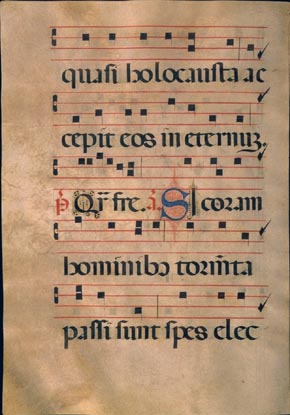 quasi holocausta ac
cepit eos in eternuz.
p̄ Qr̄ fre. ā Si coram
hominibꝫ torm̄ta
passi sunt spes elec